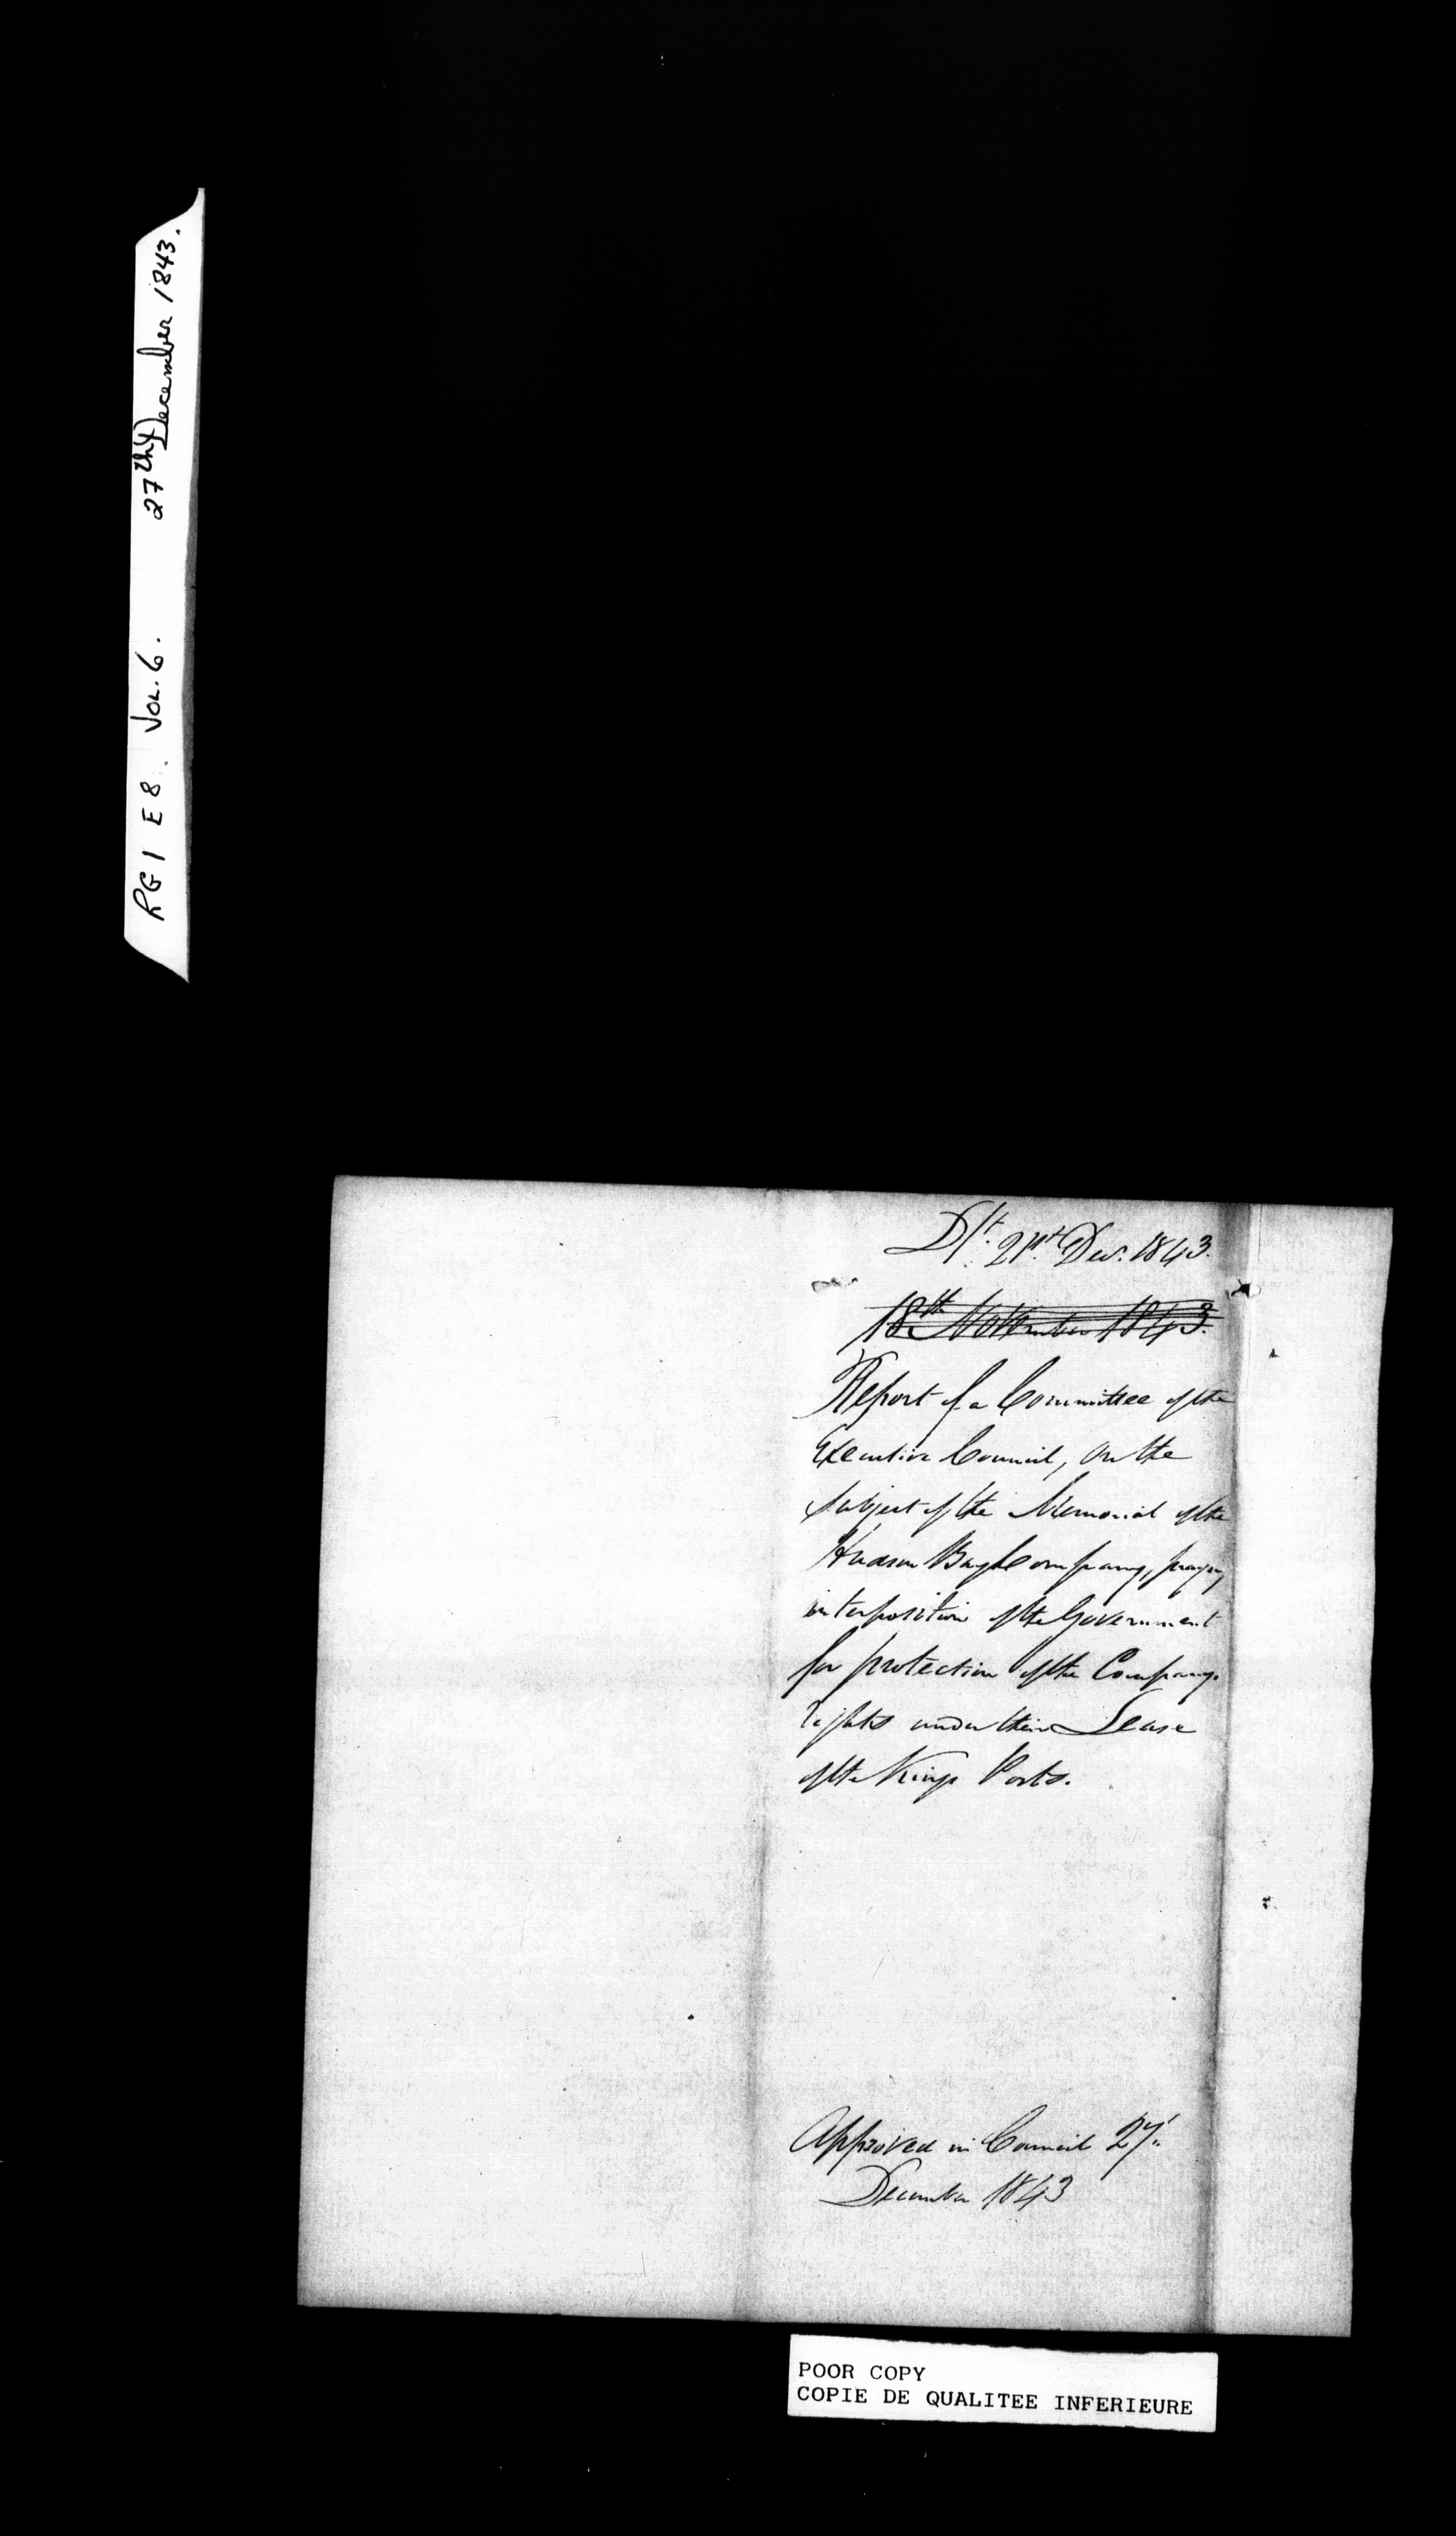 RG 1 E 8. Vol. 6. 27th December 1843.
Dt. 21st Decr. 1843.
18th November 1843.
Report of a Committee of the
Executive Council, on the
subject of the Memorial of the
Hudson Bay Company, praying
interposition of the Government
for protection of the Companys
rights under their Lease
of the Kings Posts.
Approved in Council 27th
December 1843
POOR COPY
COPIE DE QUALITEE INFERIEURE